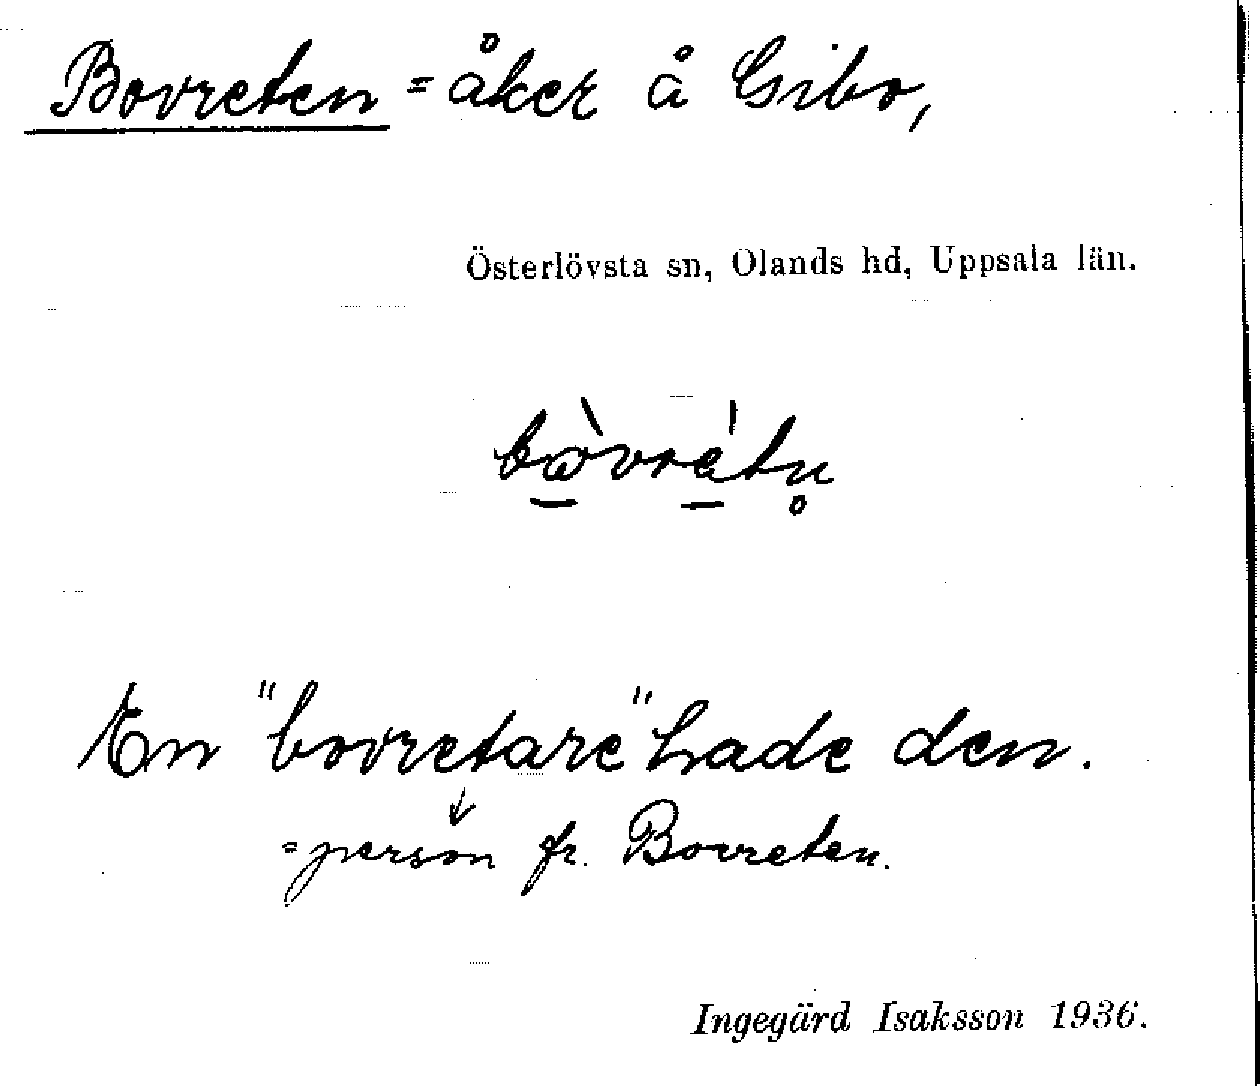 Bovreten = åker å Gibo,
Österlövsta sn, Olands hd, Uppsala län.
En "bovretare" hade den.
= person fr. Bovreten.
Ingegärd Isaksson 1936.